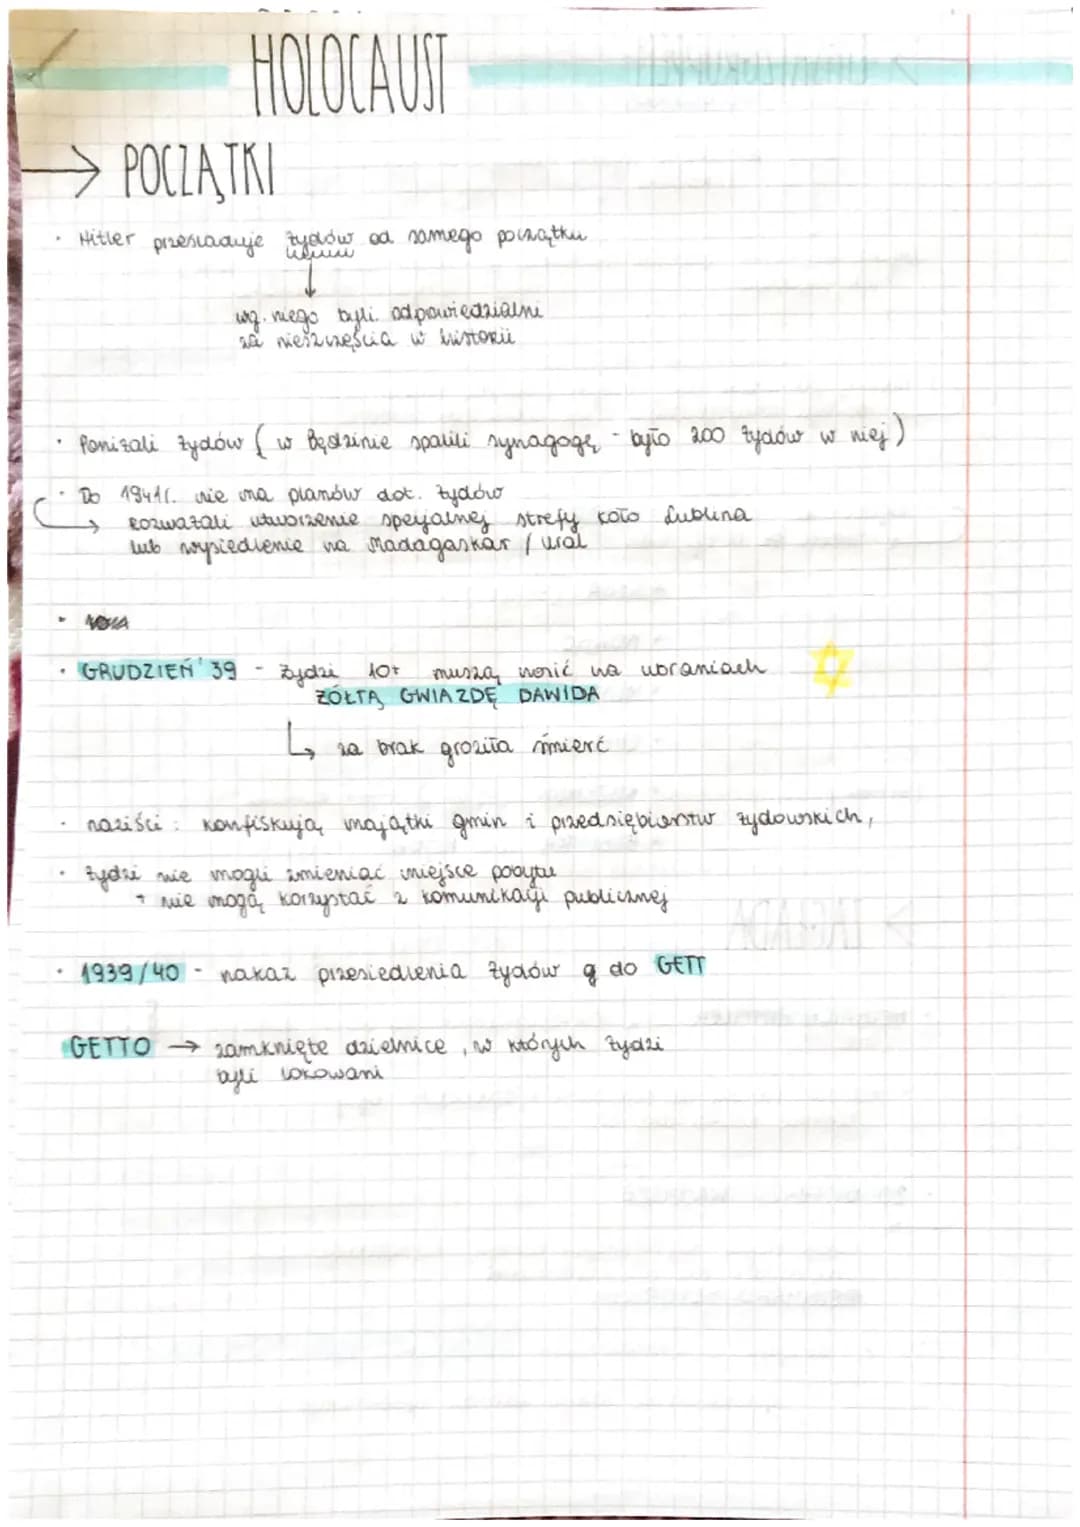 HOLOCAUST
→ POCZĄTKI
· Hitler prześladuje żydów od samego początku
↓
wg. niego byli odpowiedzialni
za nieszczęścia w historii
· Poniżali żydów ( w Będzinie spalili synagogę - było 200 żydów w niej )
· Do 1941r. nie ma planów dot. żydów
→ rozważali utworzenie specjalnej strefy koło Lublina
lub wysiedlenie na Madagaskar / Ural
· GRUDZIEŃ '39 - Żydzi 10+ muszą nosić na ubraniach
ŻÓŁTĄ GWIAZDĘ DAWIDA
↳ za brak groziła śmierć
· naziści : konfiskują majątki gmin i przedsiębiorstw żydowskich,
· żydzi nie mogli zmieniać miejsce pobytu
+ nie mogą korzystać z komunikacji publicznej
· 1939/40 - nakaz przesiedlenia żydów g do GETT
GETTO → zamknięte dzielnice, w których żydzi
byli lokowani